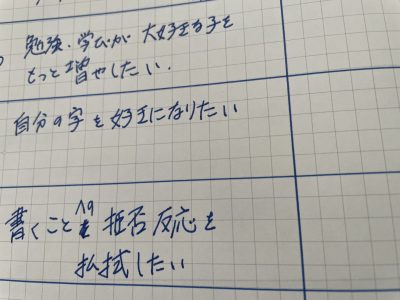 勉強、学びが大好きな子を
もっと増やしたい.
自分の字を好きになりたい
書くことへの拒否反応を
払拭したい